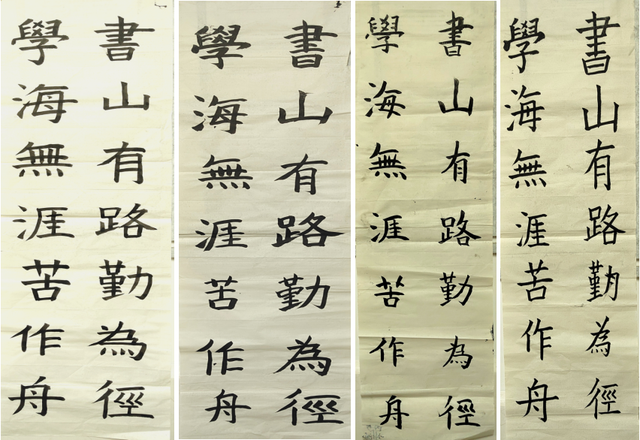 書山有路勤為徑
學海無涯苦作舟
書山有路勤為徑
學海無涯苦作舟
書山有路勤為徑
學海無涯苦作舟
書山有路勤為徑
學海無涯苦作舟